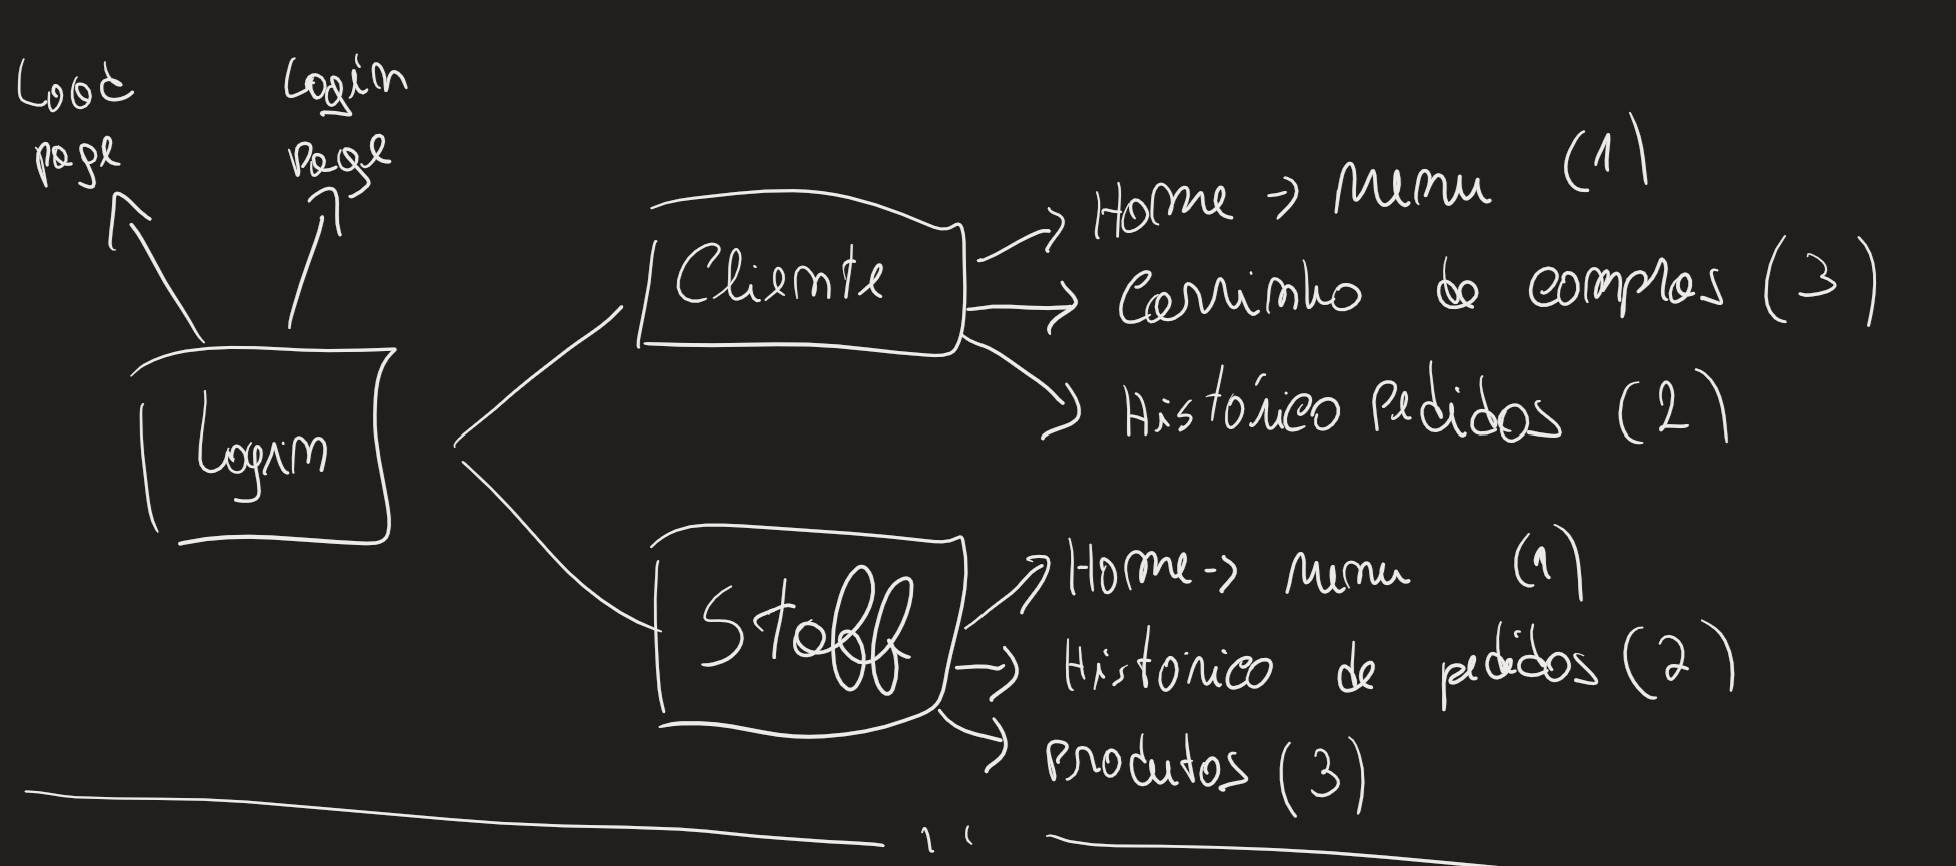 Load
page
Login
page
Login
Cliente
Home -> Menu (1)
Carrinho de compras (3)
Histórico Pedidos (2)
Staff
Home -> Menu (1)
Historico de pedidos (2)
Produtos (3)